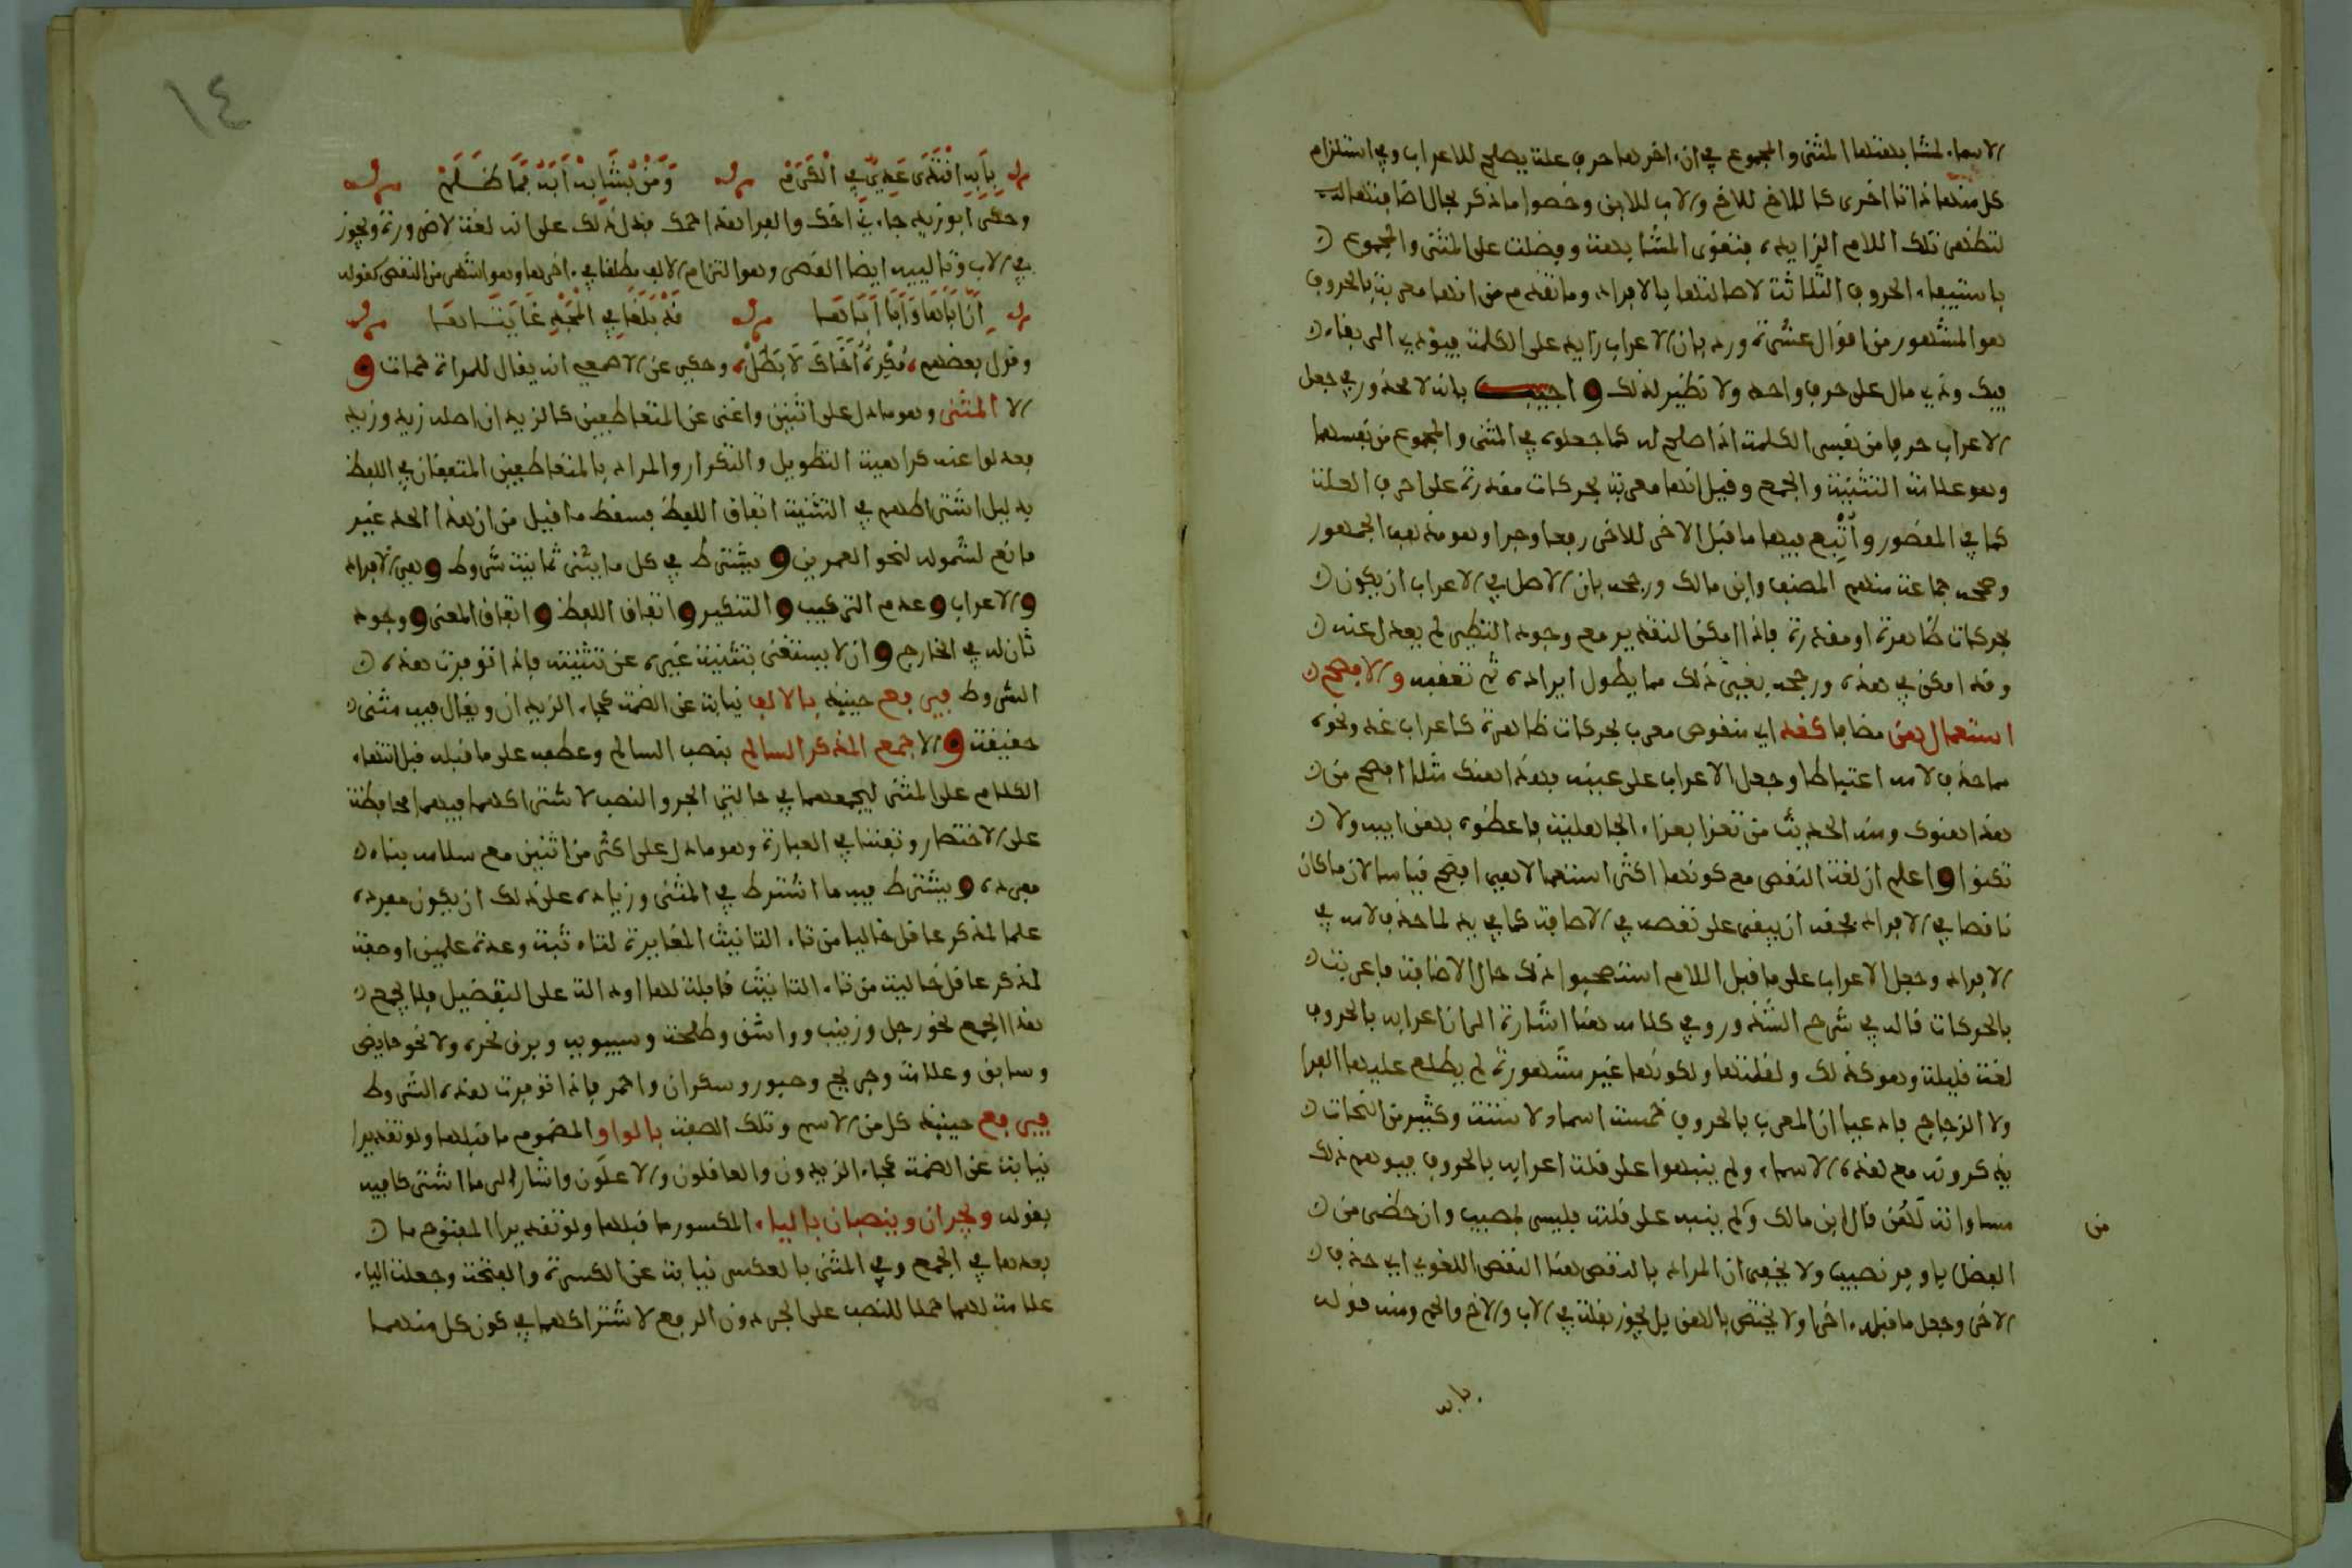 الاسماء لمشابهتها المثنى والمجموع في ان اخرها حرف علة يصلح للاعراب وفي استلزام
كل منها ذاتا اخرى كالاخ للاخ والاب للابن وخصوا ما ذكر بحال اضافتها
لتظهر تلك اللام الزايدة فتقوى المشابهة وفضلت على المثنى والمجموع
باستيفاء الحروف الثلاثة لاصالتها بالافراد وما تقدم من انها معربة بالحروف
هو المشهور من اقوال عشرة ورد بان الاعراب زايد على الكلمة فيؤدي الى بقاء
فيك وذي مال على حرف واحد ولا نظير لذلك واجيب بانه لا محذور في جعل
الاعراب حرفا من نفس الكلمة اذا صلح له كما جعلوه في المثنى والمجموع من نفسهما
وهو علامة التثنية والجمع وقيل انها معربة بحركات مقدرة على احرف العلة
كما في المقصور وأُتْبِع فيها ما قبل الاخر للاخر رفعا وجرا وهو مذهب الجمهور
وصححه جماعة منهم المصنف وابن مالك ورجحه بان الاصل في الاعراب ان يكون
بحركات ظاهرة او مقدرة فاذا امكن التقدير مع وجود النظير لم يعدل عنه
وقد امكن في هذه ورجحه بغير ذلك مما يطول ايراده ثم تعقبه والافصح
استعمال هن مضافا كغد اي منقوص معرب بحركات ظاهرة كاعراب غد ونحوه
مما حذف لامه اعتباطا وجعل الاعراب على عينه فهذا هنك مثلا افصح من
هذا هنوك ومنه الحديث من تعزا بعزاء الجاهلية فاعضوه بهن ابيه ولا
تكنوا واعلم ان لغة النقص مع كونها اكثر استعمالا هي افصح قياسا لان ما كان
ناقصا في الافراد فحقه ان يبقى على نقصه في الاضافة كما في يد لما حذف لامه في
الافراد وجعل الاعراب على ما قبل اللام استصحبوا ذلك حال الاضافة فاعربت
بالحركات قاله في شرح الشذور وفي كلامه هنا اشارة الى ان اعرابه بالحروف
لغة قليلة وهو كذلك ولقلتها ولكونها غير مشهورة لم يطلع عليها الفرا
ولا الزجاج فادعيا ان المعرب بالحروف خمسة اسما ولا ستة وكثير من النحات
يذكرونه مع هذه الاسماء ولم ينبهوا على قلة اعرابه بالحروف فيوهم ذلك
مساواته لهن قال ابن مالك ولم ينبه على قلته فليس بمصيب وان حظى من
من
الفضل باوفر نصيب ولا يخفى ان المراد بالنقص هنا النقص اللغوي اي حذف
الاخر وجعل ما قبله اخرا ولا يختص بالهن بل يجوز بقلة في الاب والاخ والحم ومنه قوله
بابه
١٤
بِأَبِهِ اقْتَدَى عَدِيٌّ فِي الْكَرَمْ وَمَنْ يُشَابِهْ أَبَهُ فَمَا ظَلَمْ
وحكى ابو زيد جاءني اخك والفرا هذا حمك فدل ذلك على انه لغة لا ضرورة ويجوز
في الاب وتالييه ايضا القصر وهو التزام الالف مطلقا في اخرها وهو اشهر من النقص كقوله
إِنَّ أَبَاهَا وَأَبَا أَبَاهَا قَدْ بَلَغَا فِي الْمَجْدِ غَايَتَاهَا
وقول بعضهم مُكْرَهٌ أَخَاكَ لَا بَطَلٌ وحكي عن الاصمعي انه يقال للمراة حمات و
الا المثنى وهو ما دل على اثنين واغنى عن المتعاطفين كالزيدان اصله زيد وزيد
فعدلوا عنه كراهية التطويل والتكرار والمراد بالمتعاطفين المتفقان في اللفظ
بدليل اشتراطهم في التثنية اتفاق اللفظ فسقط ما قيل من ان هذا الحد غير
مانع لشموله لنحو العمرين ويشترط في كل ما يثنى ثمانية شروط وهي الافراد
والاعراب وعدم التركيب والتنكير واتفاق اللفظ واتفاق المعنى ووجود
ثان له في الخارج وان لا يستغنى بتثنية غيره عن تثنيته فاذا توفرت هذه
الشروط فيرفع حينئذ بالالف نيابة عن الضمة كجاء الزيدان ويقال فيه مثنى
حقيقة والا جمع المذكر السالم بنصب السالم وعطفه على ما قبله قبل انتهاء
الكلام على المثنى ليجمعهما في حالتي الجر والنصب لاشتراكهما فيهما محافظة
على الاختصار وتفننا في العبارة وهو ما دل على اكثر من اثنين مع سلامة بناء
مفرده ويشترط فيه ما اشترط في المثنى وزيادة على ذلك ان يكون مفرده
علما لمذكر عاقل خاليا من تاء التانيث المغايرة لتاء ثبة وعدة علمين او صفة
لمذكر عاقل خالية من تاء التانيث قابلة لها او دالة على التفضيل فلا يجمع
هذا الجمع نحو رجل وزينب وواشق وطلحة وسيبويه وبرق نحره ولا نحو حايض
وسابق وعلامة وجريح وصبور وسكران واحمر فاذا توفرت هذه الشروط
فيرفع حينئذ كل من الاسم وتلك الصفة بالواو المضموم ما قبلها ولو تقديرا
نيابة عن الضمة كجاء الزيدون والعاقلون والاعلون واشار الى ما اشتركا فيه
بقوله ويجران وينصبان بالياء المكسور ما قبلها ولو تقديرا المفتوح ما
بعدها في الجمع وفي المثنى بالعكس نيابة عن الكسرة والفتحة وجعلت الياء
علامة لهما حملا للنصب على الجر دون الرفع لاشتراكهما في كون كل منهما